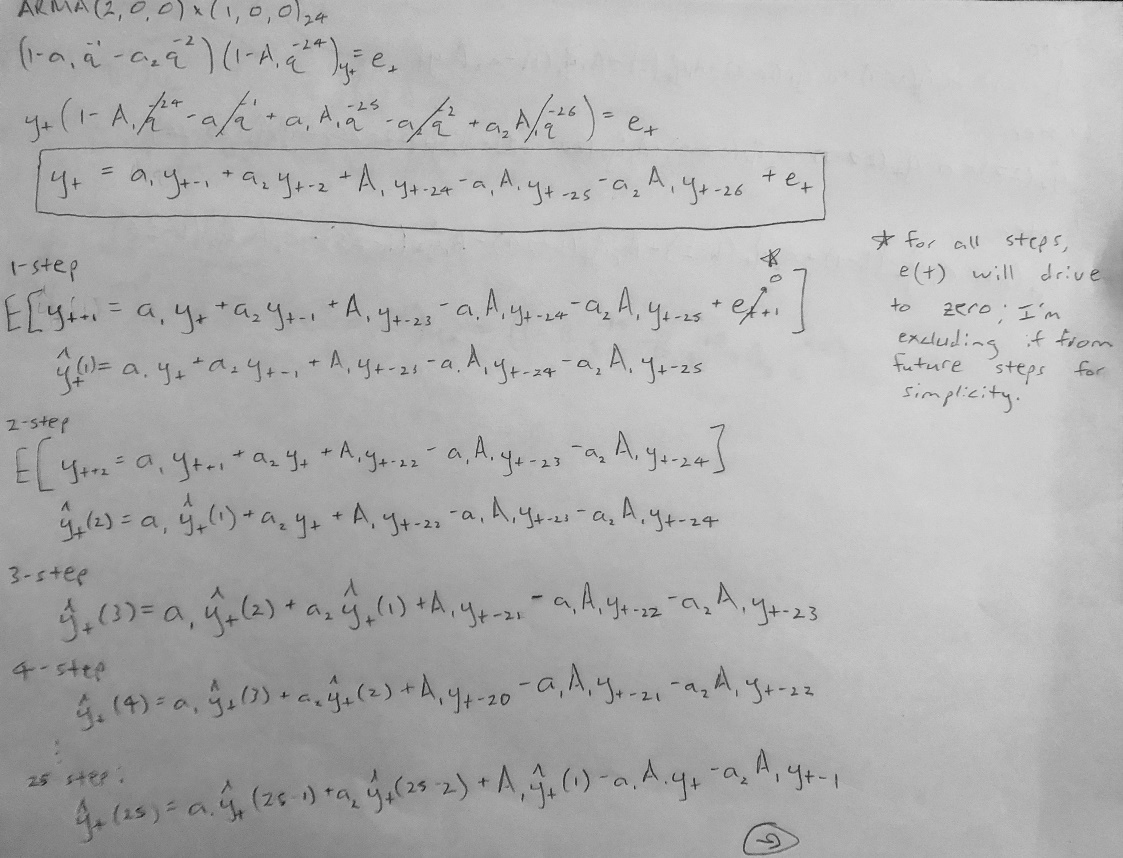 ARMA(2,0,0)x(1,0,0)₂₄
(1-a₁q⁻¹-a₂q⁻²)(1-A₁q⁻²⁴)yₜ=eₜ
yₜ(1-A₁q⁻²⁴-a₁q⁻¹+a₁A₁q⁻²⁵-a₂q⁻²+a₂A₁q⁻²⁶)=eₜ
yₜ = a₁yₜ₋₁+a₂yₜ₋₂+A₁yₜ₋₂₄-a₁A₁yₜ₋₂₅-a₂A₁yₜ₋₂₆+eₜ
1-step
E[yₜ₊₁ = a₁yₜ+a₂yₜ₋₁+A₁yₜ₋₂₃-a₁A₁yₜ₋₂₄-a₂A₁yₜ₋₂₅+eₜ₊₁] * 0
ŷₜ(1)=a₁yₜ+a₂yₜ₋₁+A₁yₜ₋₂₃-a₁A₁yₜ₋₂₄-a₂A₁yₜ₋₂₅
* for all steps,
e(t) will drive
to zero; I'm
excluding it from
future steps for
simplicity.
2-step
E[yₜ₊₂=a₁yₜ₊₁+a₂yₜ+A₁yₜ₋₂₂-a₁A₁yₜ₋₂₃-a₂A₁yₜ₋₂₄]
ŷₜ(2)=a₁ŷₜ(1)+a₂yₜ+A₁yₜ₋₂₂-a₁A₁yₜ₋₂₃-a₂A₁yₜ₋₂₄
3-step
ŷₜ(3)=a₁ŷₜ(2)+a₂ŷₜ(1)+A₁yₜ₋₂₁-a₁A₁yₜ₋₂₂-a₂A₁yₜ₋₂₃
4-step
ŷₜ(4)=a₁ŷₜ(3)+a₂ŷₜ(2)+A₁yₜ₋₂₀-a₁A₁yₜ₋₂₁-a₂A₁yₜ₋₂₂
⋮
25 step:
ŷₜ(25)=a₁ŷₜ(25-1)+a₂ŷₜ(25-2)+A₁ŷₜ(1)-a₁A₁yₜ-a₂A₁yₜ₋₁